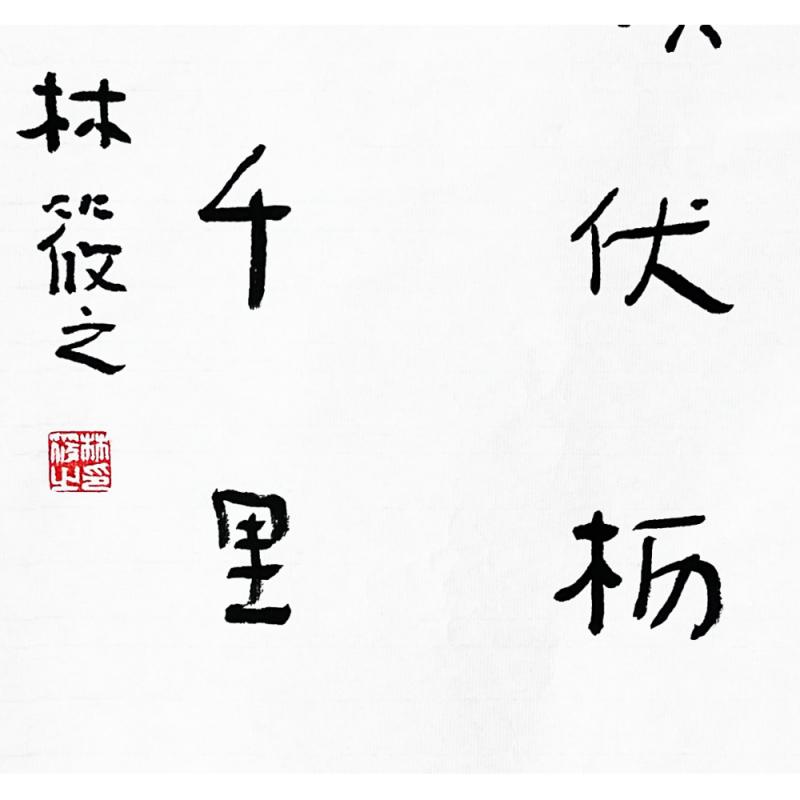 伏枥
千里
林筱之
林印
筱之